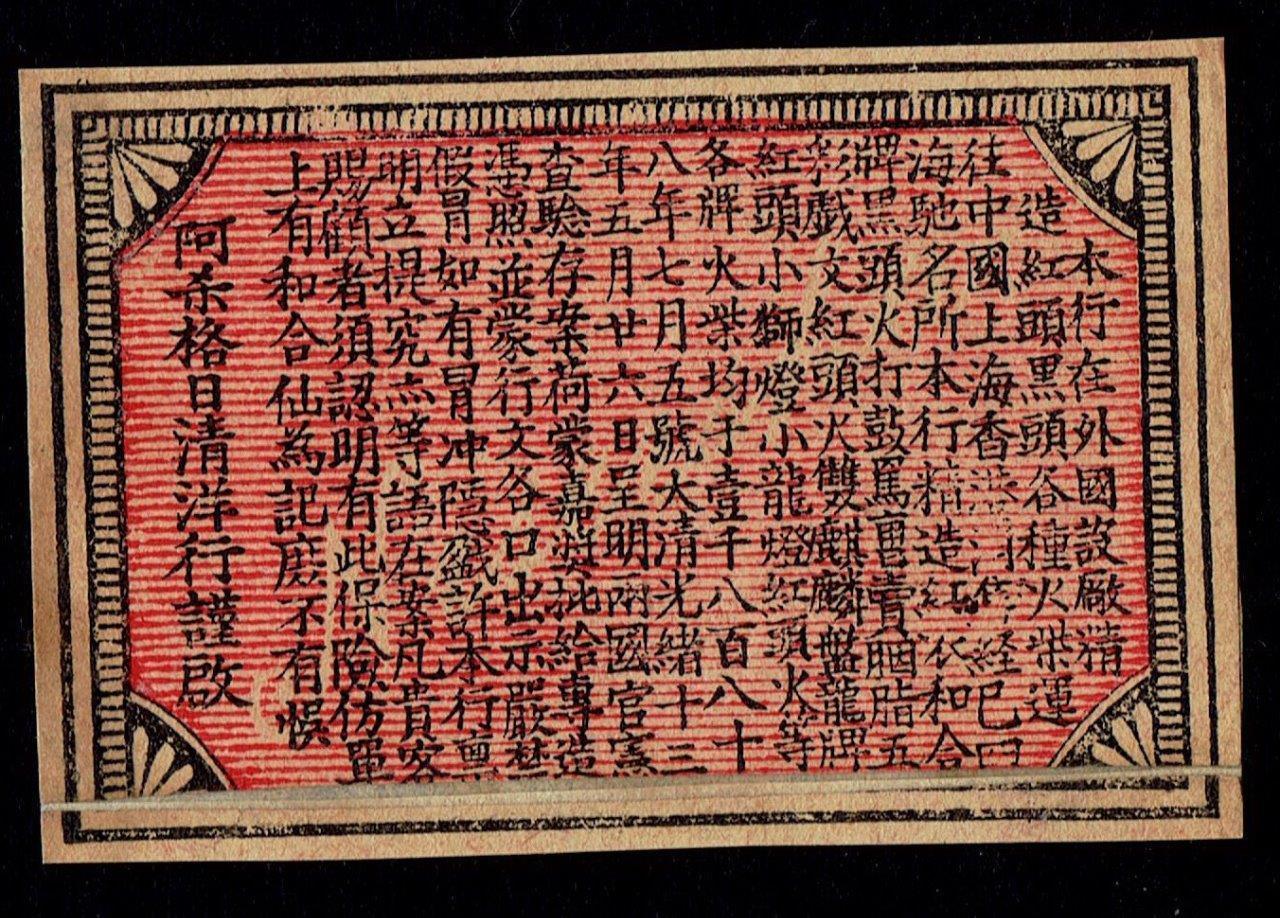 本行在外國設廠精
造紅頭黑頭各種火柴運
往中國上海香港 經已口
海馳名所本行精造紅衣和合
牌黑頭火打鼓馬 賣胭脂五
彩戲文紅頭火雙麒麟盤龍牌
紅頭小獅燈小龍燈紅頭火等
各牌火柴均于壹千八百八十
八年七月五號大清光緒十三
年五月廿六日呈明兩國官憲
查驗存案荷蒙嘉獎批給專造
憑照並蒙行文各口出示嚴禁
假冒如有冒冲隱戤許本行稟
明立提究亦等語在案凡貴客
賜顧者須認明有此保險仿單
上有和合仙為記庶不有悞
阿希格日清洋行謹啟